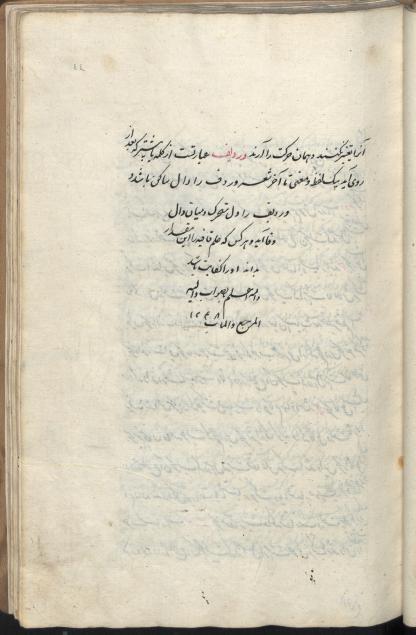 آنرا تغییر نکنند و همان حرکت را آرند و ردیف عبارتست از کلمه یا بیشتر که بعد از
روی آید بیک لفظ و معنی تا آخر شعر و ردف را دال ساکن باشد و
در ردیف را دال متحرک و میان دال
و فا آید و هر کس که علم قافیه را این مقدار
بداند او را کفایت باشد
والله اعلم بالصواب والیه
المرجع والمآب ۱۲۴۸